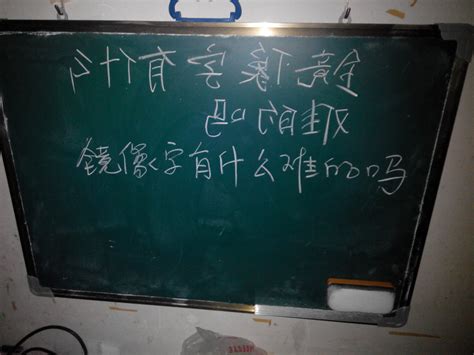 镜像字有什么
难的吗
镜像字有什么难的吗